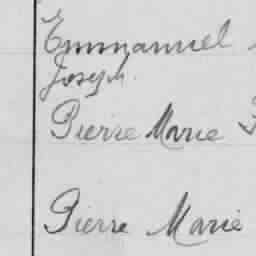 Emmanuel
Joseph.
Pierre Marie
Pierre Marie